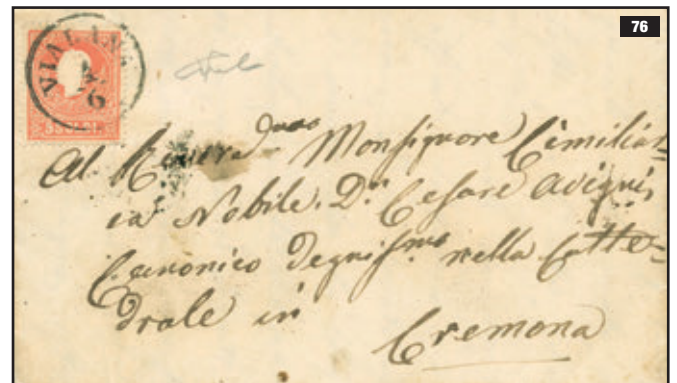 76
VIADANA
5 SOLDI
Al Reverd.mo Monsignore Cimiliar=
ca Nobile. D.n Cesare
Canonico degnis.mo nella Catte=
drale in
Cremona